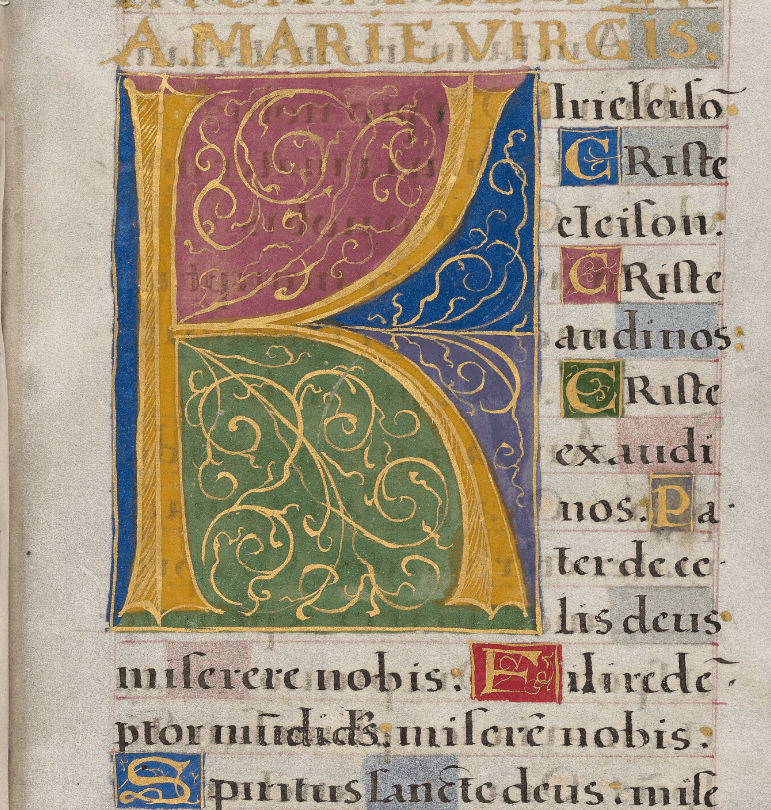 A. MARIE VIRGIS:
K
Iriel eiſō
CRiſte
eleiſon.
CRiſte
audi nos:
CRiſte
exaudi
nos. Pa
ter de ce
lis deus
miſerere nobis: Fili rede
ptor mūdi miſerē nobis:
Spiritus ſancte deus: miſe